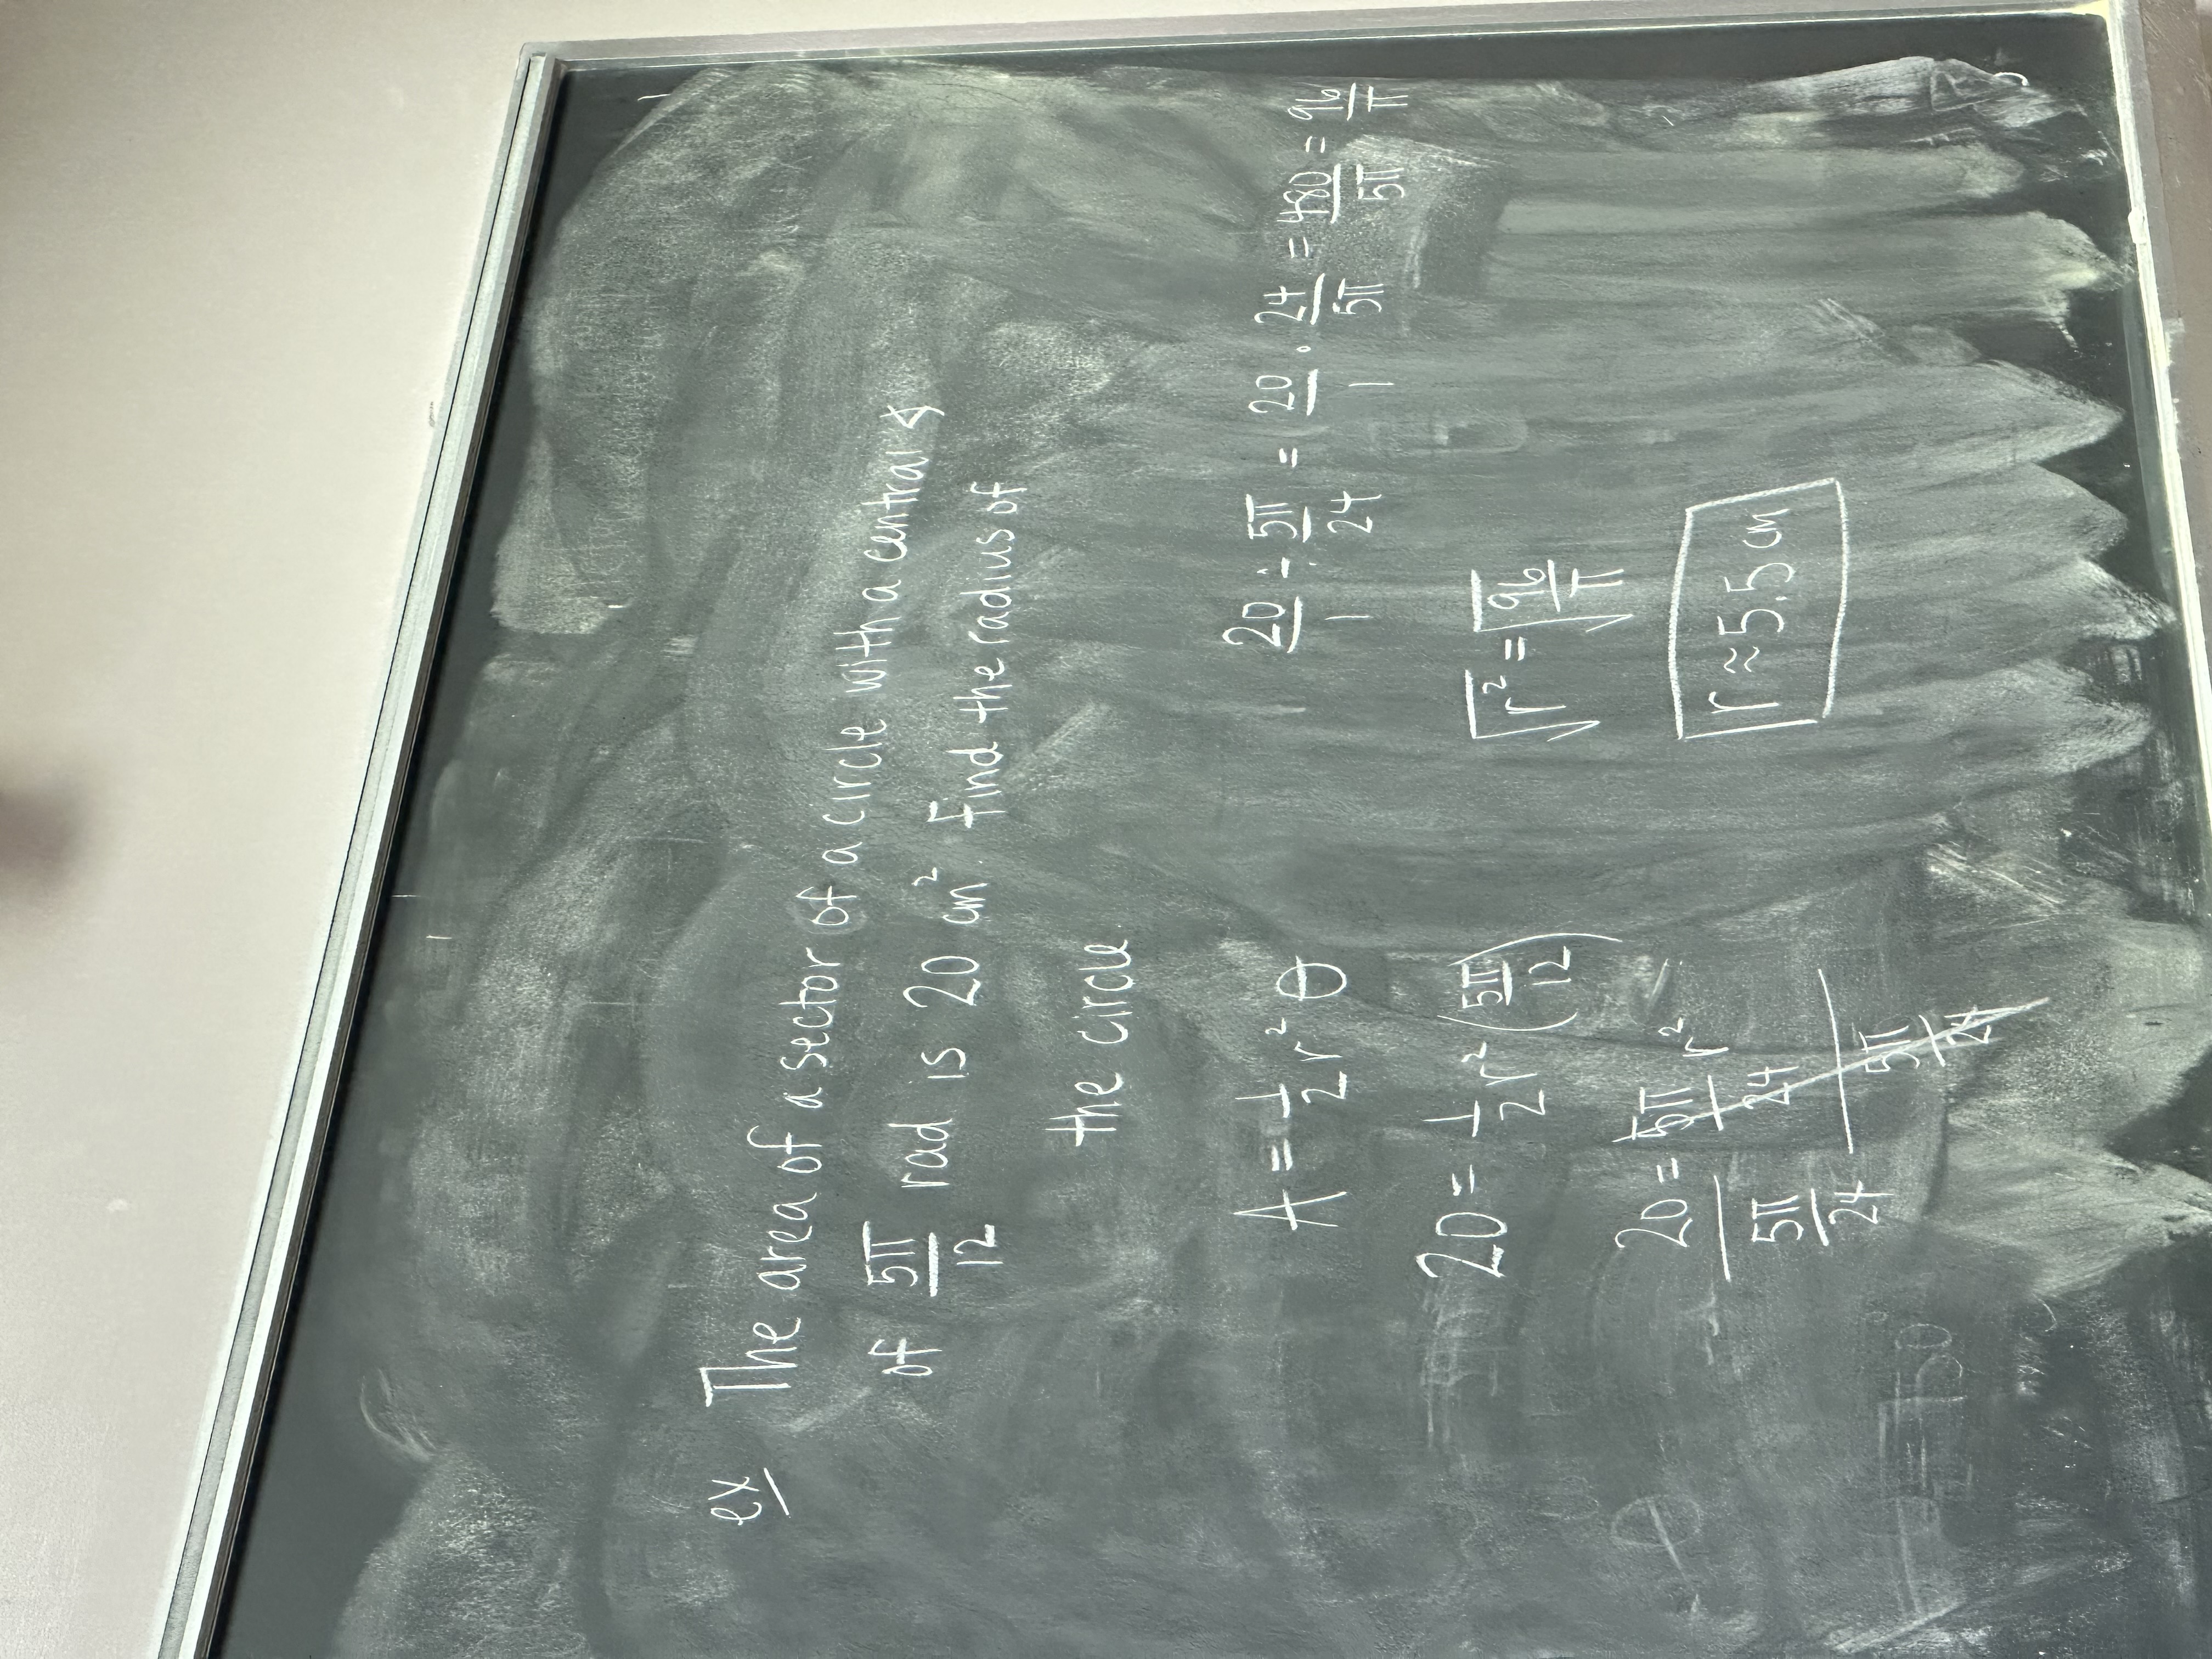 ex The area of a sector of a circle with a central ∢
of 5π/12 rad is 20 cm². Find the radius of
the circle.
A = 1/2 r² θ
20 = 1/2 r² (5π/12)
20 / (5π/24) = (5π/24) r² / (5π/24)
20/1 ÷ 5π/24 = 20/1 · 24/5π = 480/5π = 96/π
√r² = √(96/π)
r ≈ 5.5 cm